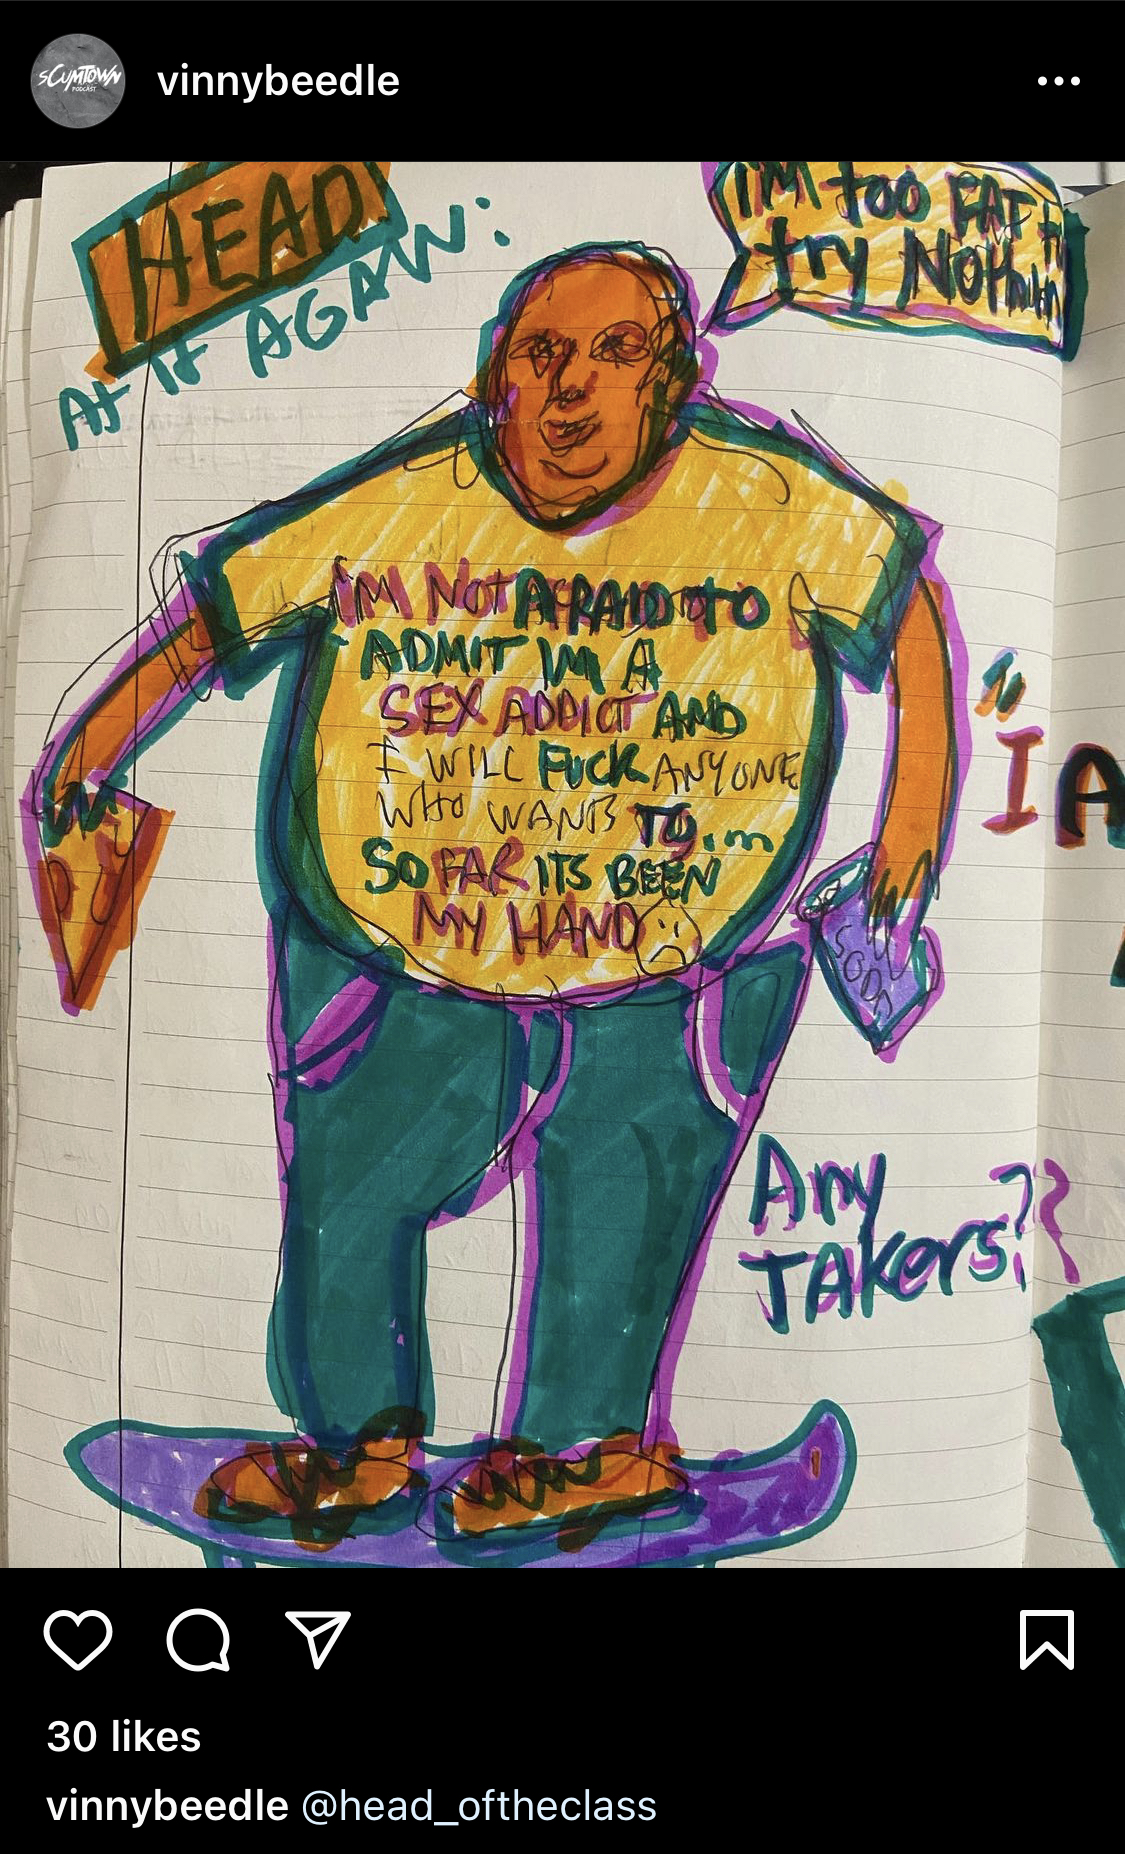 SCUMTOWN
PODCAST
vinnybeedle
HEAD
At It AGAN:
I'M too FAT
try NotHuin
I'M Not AFRAID tO
ADMIT IM A
SEX ADDICT AND
I WILL FUCK ANYONE
WHO WANTS TO...
SO FAR ITS BEEN
MY HAND
SODA
"I A
Any
TAkers??
30 likes
vinnybeedle @head_oftheclass